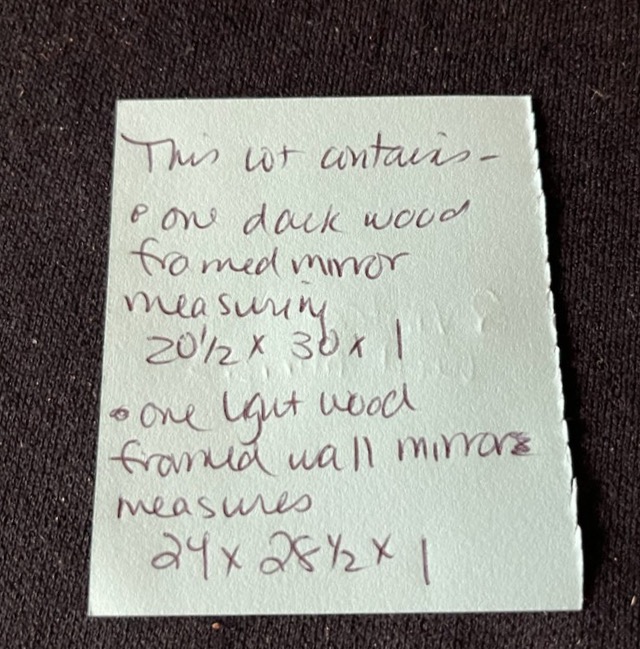 This lot contains -
• one dark wood
framed mirror
measuring
20 1/2 x 30 x 1
• one light wood
framed wall mirrors
measures
24 x 28 1/2 x 1